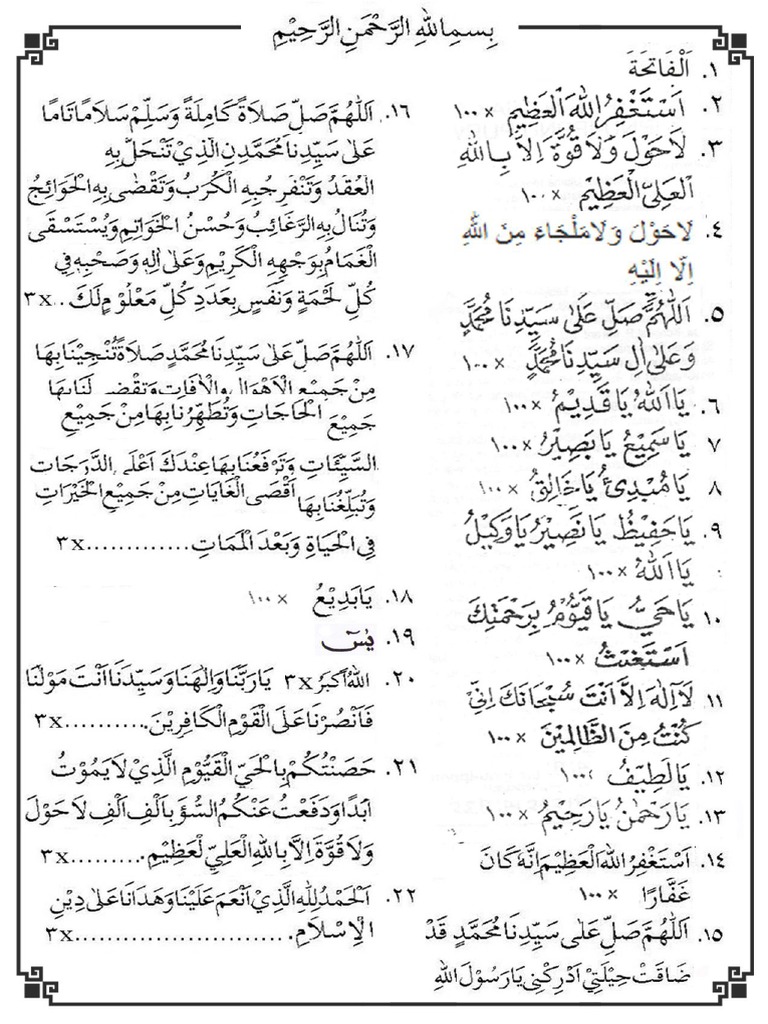 بِسْمِ اللهِ الرَّحْمَنِ الرَّحِيْمِ
١. اَلْفَاتِحَةَ
٢. اَسْتَغْفِرُ اللهَ الْعَظِيْمِ × ١٠٠
٣. لَاحَوْلَ وَلَا قُوَّةَ اِلَّا بِاللهِ
الْعَلِيِّ الْعَظِيْمِ × ١٠٠
٤. لَاحَوْلَ وَلَامَلْجَاءَ مِنَ اللهِ
اِلَّا اِلَيْهِ
٥. اَللّٰهُمَّ صَلِّ عَلٰى سَيِّدِنَا مُحَمَّدٍ
وَعَلٰى اٰلِ سَيِّدِنَا مُحَمَّدٍ × ١٠٠
٦. يَا اَللهُ يَا قَدِيْمُ × ١٠٠
٧ يَا سَمِيْعُ يَا بَصِيْرُ × ١٠٠
٨ يَا مُبْدِئُ يَا خَالِقُ × ١٠٠
٩. يَا حَفِيْظُ يَا نَصِيْرُ يَا وَكِيْلُ
يَا اَللهُ × ١٠٠
١٠. يَا حَيُّ يَا قَيُّوْمُ بِرَحْمَتِكَ
اَسْتَغِيْثُ × ١٠٠
١١ لَآاِلٰهَ اِلَّا اَنْتَ سُبْحَانَكَ اِنِّيْ
كُنْتُ مِنَ الظَّالِمِيْنَ × ١٠٠
١٢. يَالَطِيْفُ ١٠٠
١٣. يَا رَحْمٰنُ يَا رَحِيْمُ × ١٠٠
١٤. اَسْتَغْفِرُ اللهَ الْعَظِيْمَ اِنَّهُ كَانَ
غَفَّارًا × ١٠٠
١٥. اَللّٰهُمَّ صَلِّ عَلٰى سَيِّدِنَا مُحَمَّدٍ قَدْ
ضَاقَتْ حِيْلَتِيْ اَدْرِكْنِيْ يَارَسُوْلَ اللهِ
١٦. اَللّٰهُمَّ صَلِّ صَلَاةً كَامِلَةً وَسَلِّمْ سَلَامًا تَامًا
عَلٰى سَيِّدِنَا مُحَمَّدِنِ الَّذِيْ تَنْحَلُّ بِهِ
الْعُقَدُ وَتَنْفَرِجُ بِهِ الْكُرَبُ وَتُقْضٰى بِهِ الْحَوَائِجُ
وَتُنَالُ بِهِ الرَّغَائِبُ وَحُسْنُ الْخَوَاتِمِ وَيُسْتَسْقَى
الْغَمَامُ بِوَجْهِهِ الْكَرِيْمِ وَعَلٰى اٰلِهِ وَصَحْبِهِ فِيْ
كُلِّ لَحْمَةٍ وَنَفَسٍ بِعَدَدِ كُلِّ مَعْلُوْمٍ لَكَ .. ٣x
١٧. اَللّٰهُمَّ صَلِّ عَلٰى سَيِّدِنَا مُحَمَّدٍ صَلَاةً تُنْجِيْنَا بِهَا
مِنْ جَمِيْعِ الْاَهْوَالِ وَالْاٰفَاتِ وَتَقْضِيْ لَنَا بِهَا
جَمِيْعَ الْحَاجَاتِ وَتُطَهِّرُنَا بِهَا مِنْ جَمِيْعِ
السَّيِّئَاتِ وَتَرْفَعُنَا بِهَا عِنْدَكَ اَعْلَى الدَّرَجَاتِ
وَتُبَلِّغُنَا بِهَا اَقْصَى الْغَايَاتِ مِنْ جَمِيْعِ الْخَيْرَاتِ
فِي الْحَيَاةِ وَبَعْدَ الْمَمَاتِ ............. ٣x
١٨. يَابَدِيْعُ × ١٠٠
١٩. يٰسٓ
٢٠. اَللهُ اَكْبَرُ ٣x يَارَبَّنَا وَاِلٰهَنَا وَسَيِّدَنَا اَنْتَ مَوْلٰنَا
فَانْصُرْنَا عَلَى الْقَوْمِ الْكَافِرِيْنَ........... ٣x
٢١. حَصَنْتُكُمْ بِالْحَيِّ الْقَيُّوْمِ الَّذِيْ لَا يَمُوْتُ
اَبَدًا وَدَفَعْتُ عَنْكُمُ السُّوْٓءَ بِاَلْفِ اَلْفِ لَاحَوْلَ
وَلَا قُوَّةَ اِلَّا بِاللهِ الْعَلِيِّ لْعَظِيْمِ.......... ٣x
٢٢. اَلْحَمْدُ لِلّٰهِ الَّذِيْ اَنْعَمَ عَلَيْنَا وَهَدَانَا عَلٰى دِيْنِ
الْاِسْلَامِ............................ ٣x